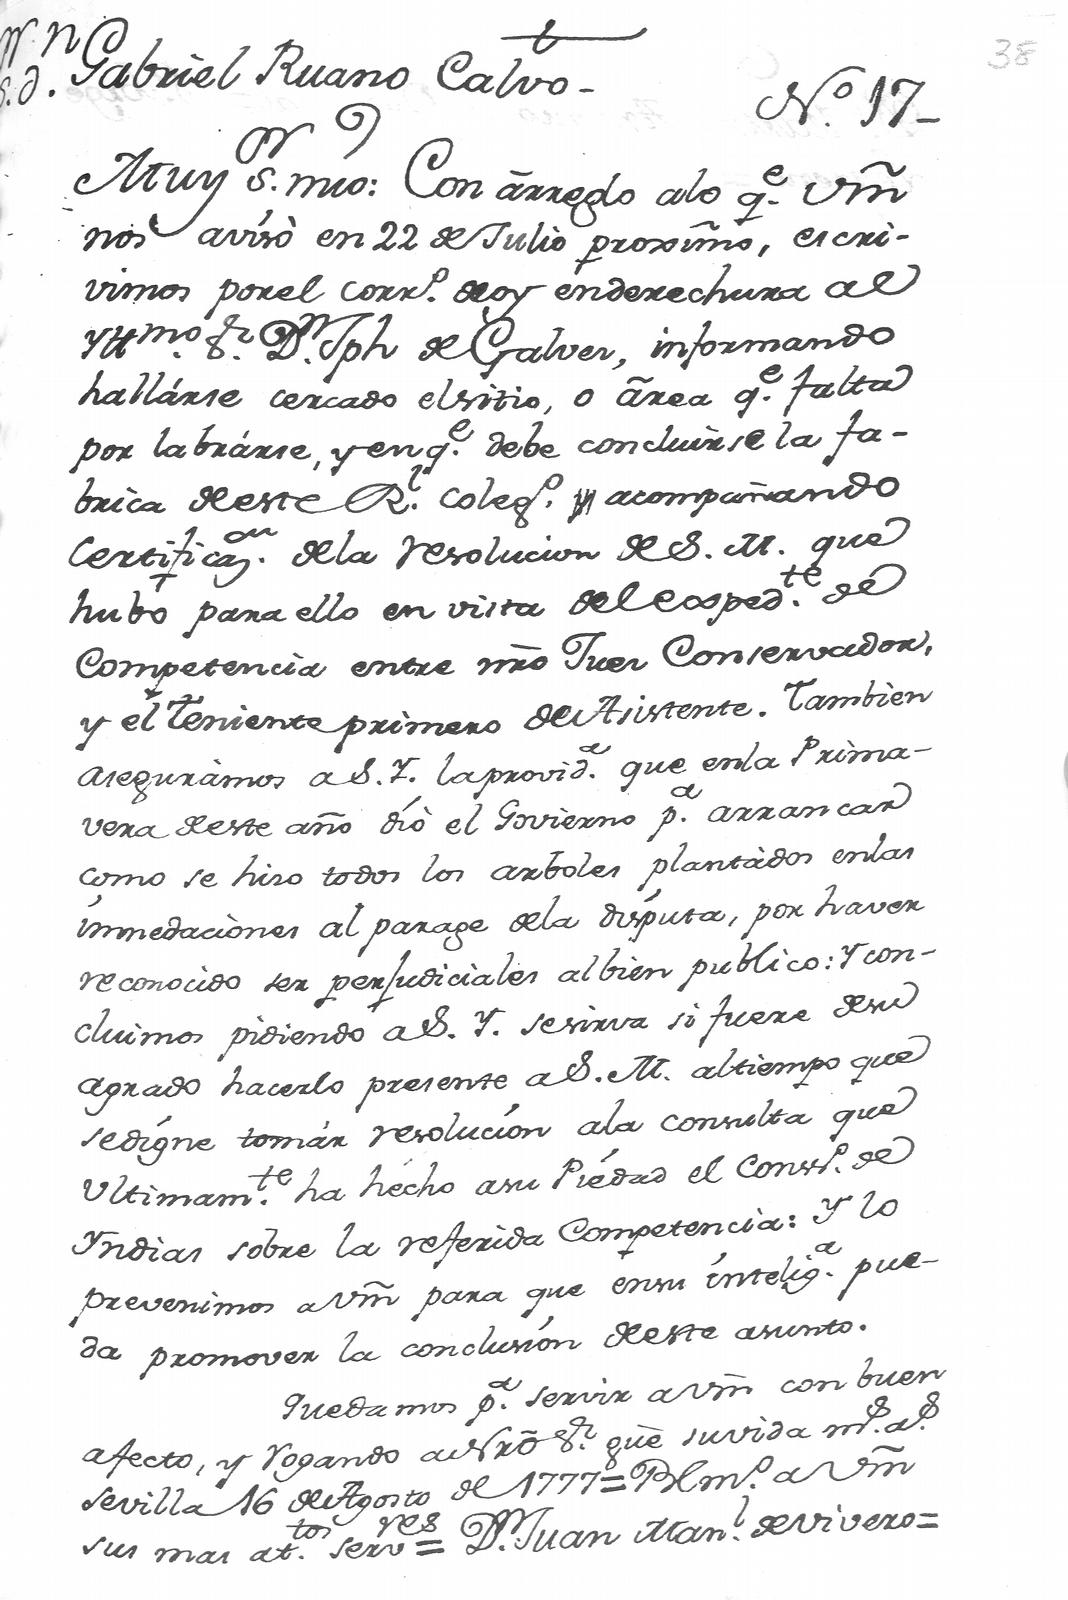 38
S.r D.n Gabriel Ruano Calvo-
N.o 17-
Muy S.r mio: Con arreglo alo q.e Vm̃
nos avisò en 22 de Julio proxim̃o, escri-
vimos porel corr.o de oy enderechura al
Yllmo. S.r D.n Jph de Galvez, informando
hallárse cercado elsitio, o área q.e falta
por labrárse, y en q.e debe concluirse la fa-
brica deeste R.l coleg.o acompañando
Certificaz.on dela resolucion de S. M. que
hubo para ello en vista del exped.te de
Competencia entre nr̃o Juez Conservador,
y el Teniente primero de Asistente. Tambien
asegurámos a S. Y. laprovid.a que enla Prima-
vera deeste año dió el Govierno p.a arrancar
como se hiso todos los arboles plantádos enlas
ínmediaciones al parage dela dísputa, por haver
reconocido ser perjudiciales albien publico: Y con-
cluimos pidiendo a S. Y. sesirva si fuere desu
agrado hacerlo presente a S. M. altiempo que
sedígne tomár resolucíon ala consulta que
Ultimam.te ha hécho asu Piédad el Cons.o de
Yndias sobre la referida Competencia: Y lo
prevenimos a Vm̃ para que ensu íntelig.a pue-
da promover la conclusíon deeste asunto.
Quedamos p.a servir a Vm̃ con buen
afecto, y rogando a Nr̃o S.r gue suvida m.s a.s
Sevilla 16 de Agosto de 1777= Blm.o a Vm̃
sus mas at.tos serv.res= D.n Juan Man.l de Vivero=